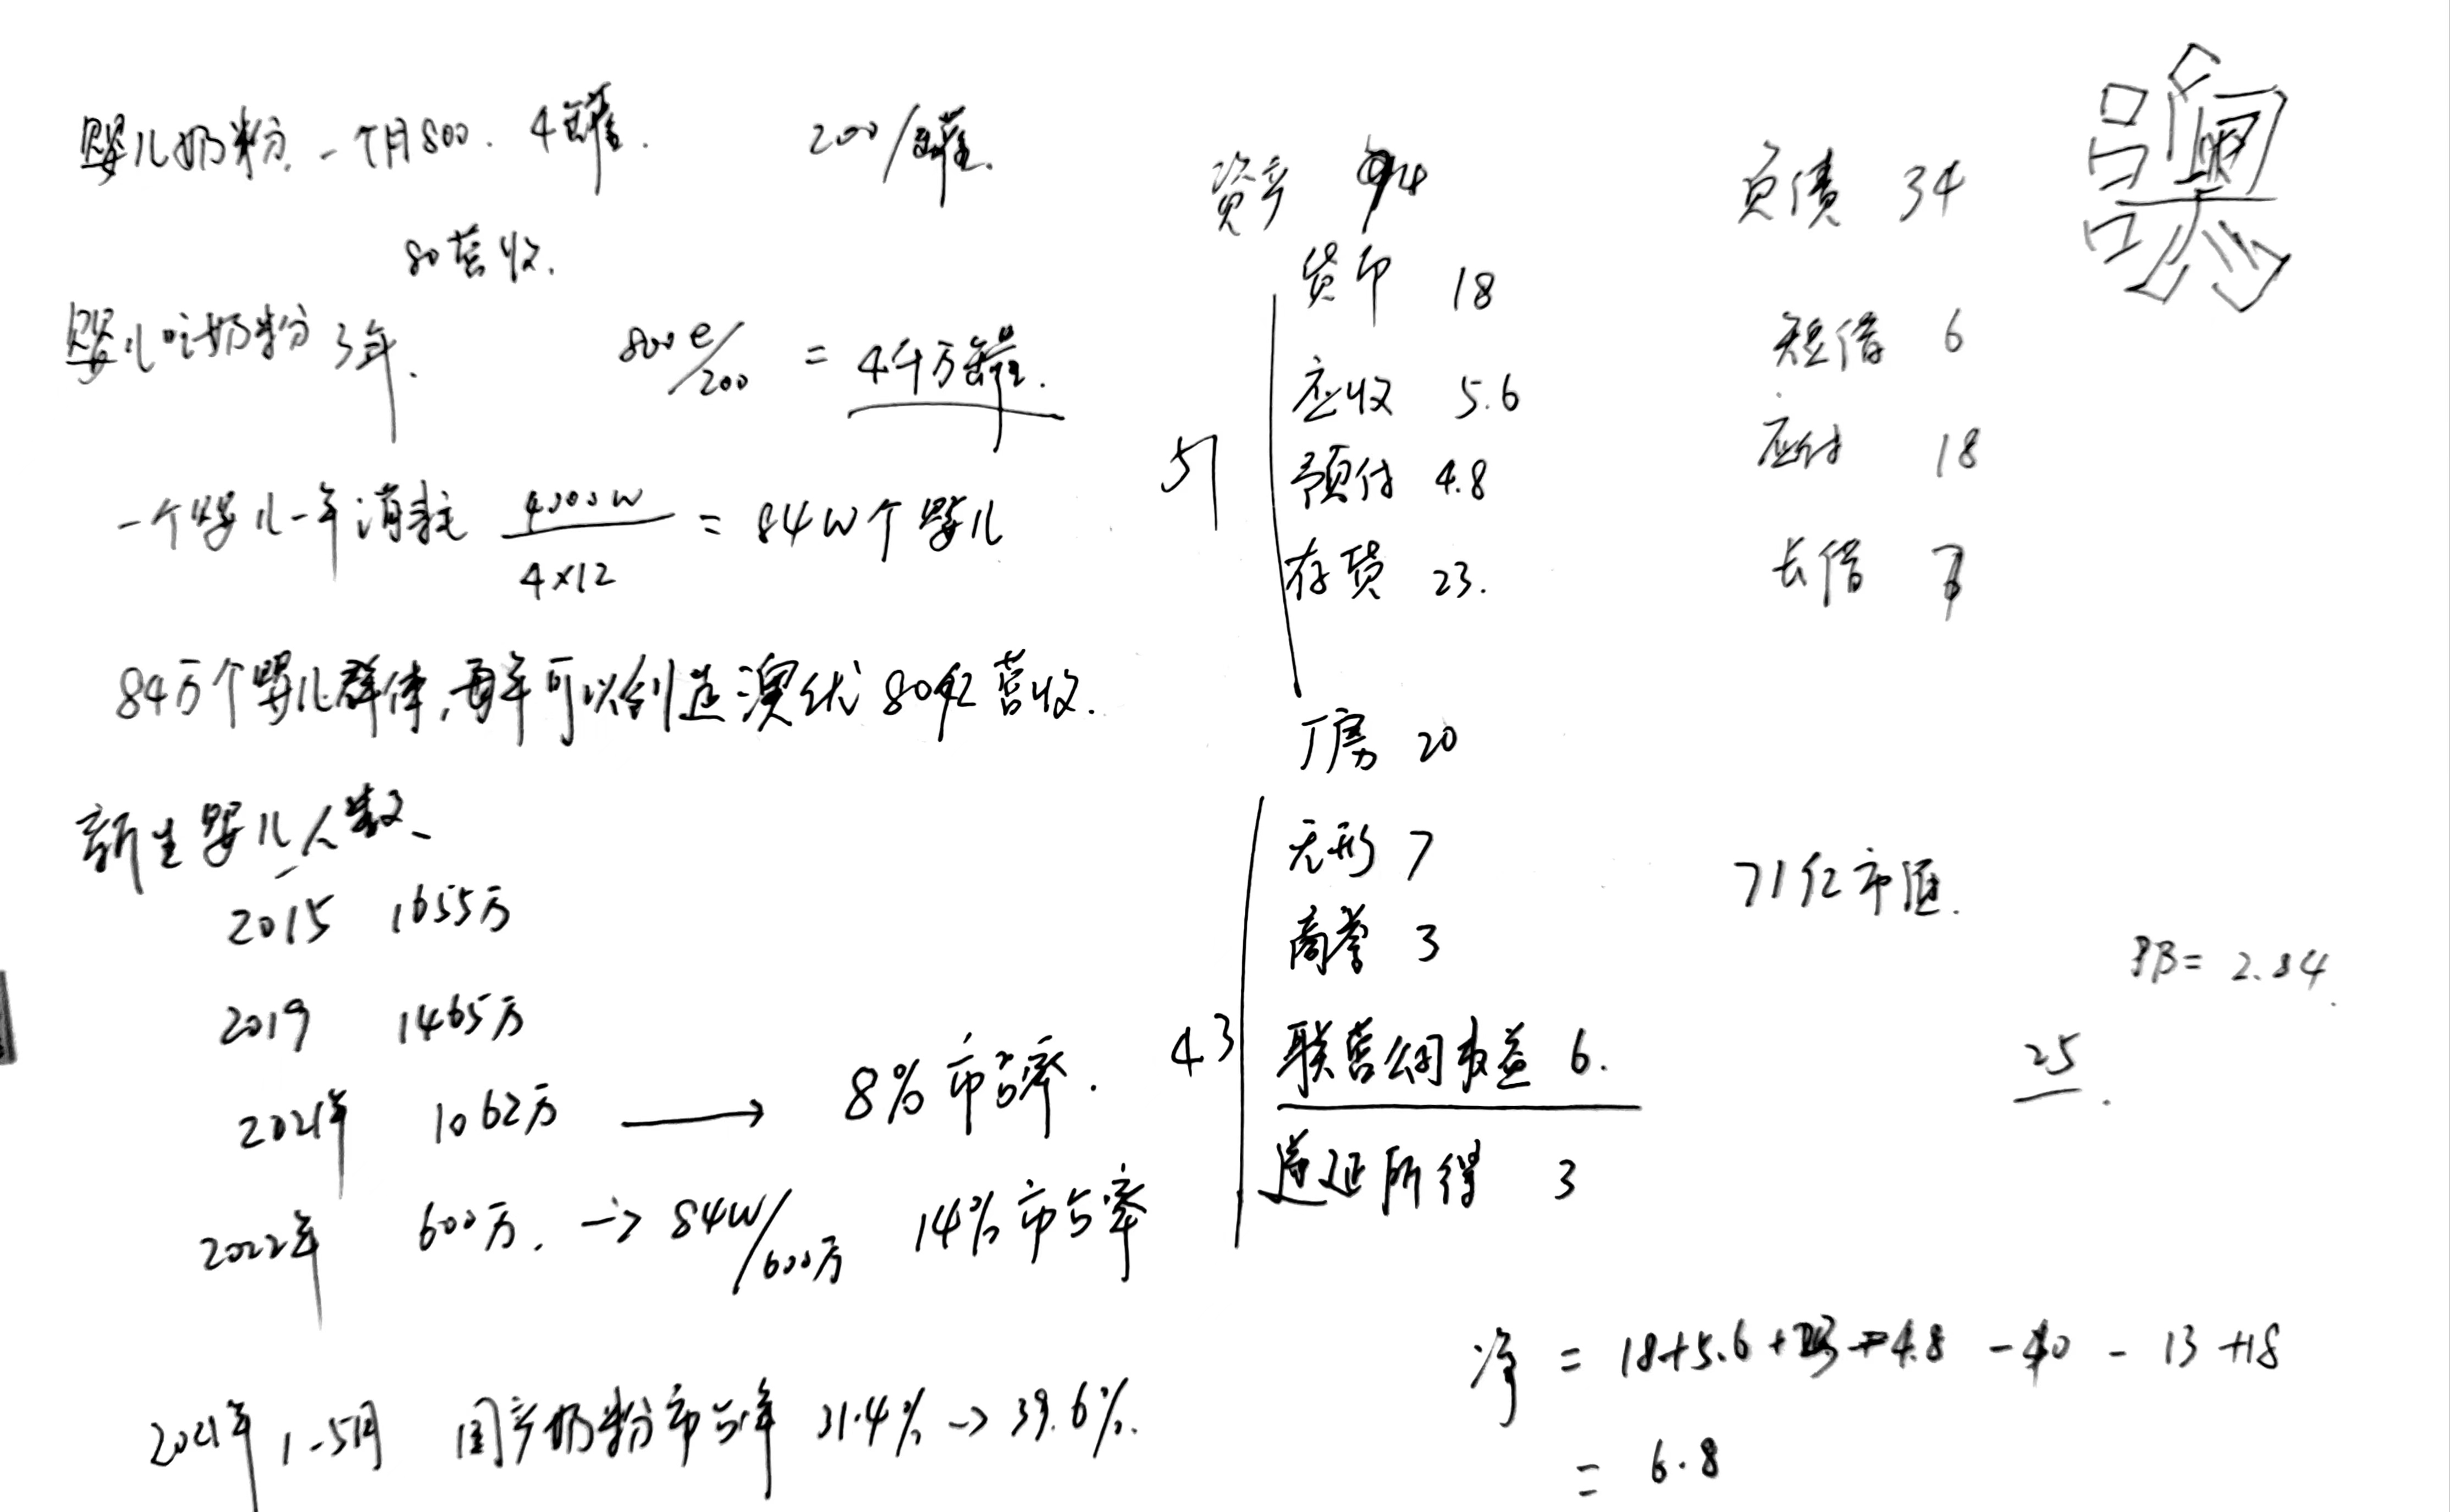 婴儿奶粉. 一个月800. 4罐. 200/罐.
80营收.
婴儿吃奶粉3年. 80亿/200 = 4千万罐.
一个婴儿一年消耗 4000W/4×12 = 84W个婴儿
84万个婴儿群体,每年可以创造澳优80亿营收.
新生婴儿人数、
2015 1655万
2019 1465万
2021年 1062万 → 8% 市占率.
2022年 600万. -> 84W/600万 14%市占率
2021年 1-5月 国产奶粉市占率 31.4% -> 39.6%.
资产 94
货币 18
应收 5.6
51
预付 4.8
存货 23.
厂房 20
无形 7
商誉 3
43
联营公司权益 6.
递延所得 3
负债 34
短借 6
应付 18
长借
71亿市值.
PB= 2.84.
25
净 = 18+5.6+23+4.8 -40 - 13 +18
= 6.8